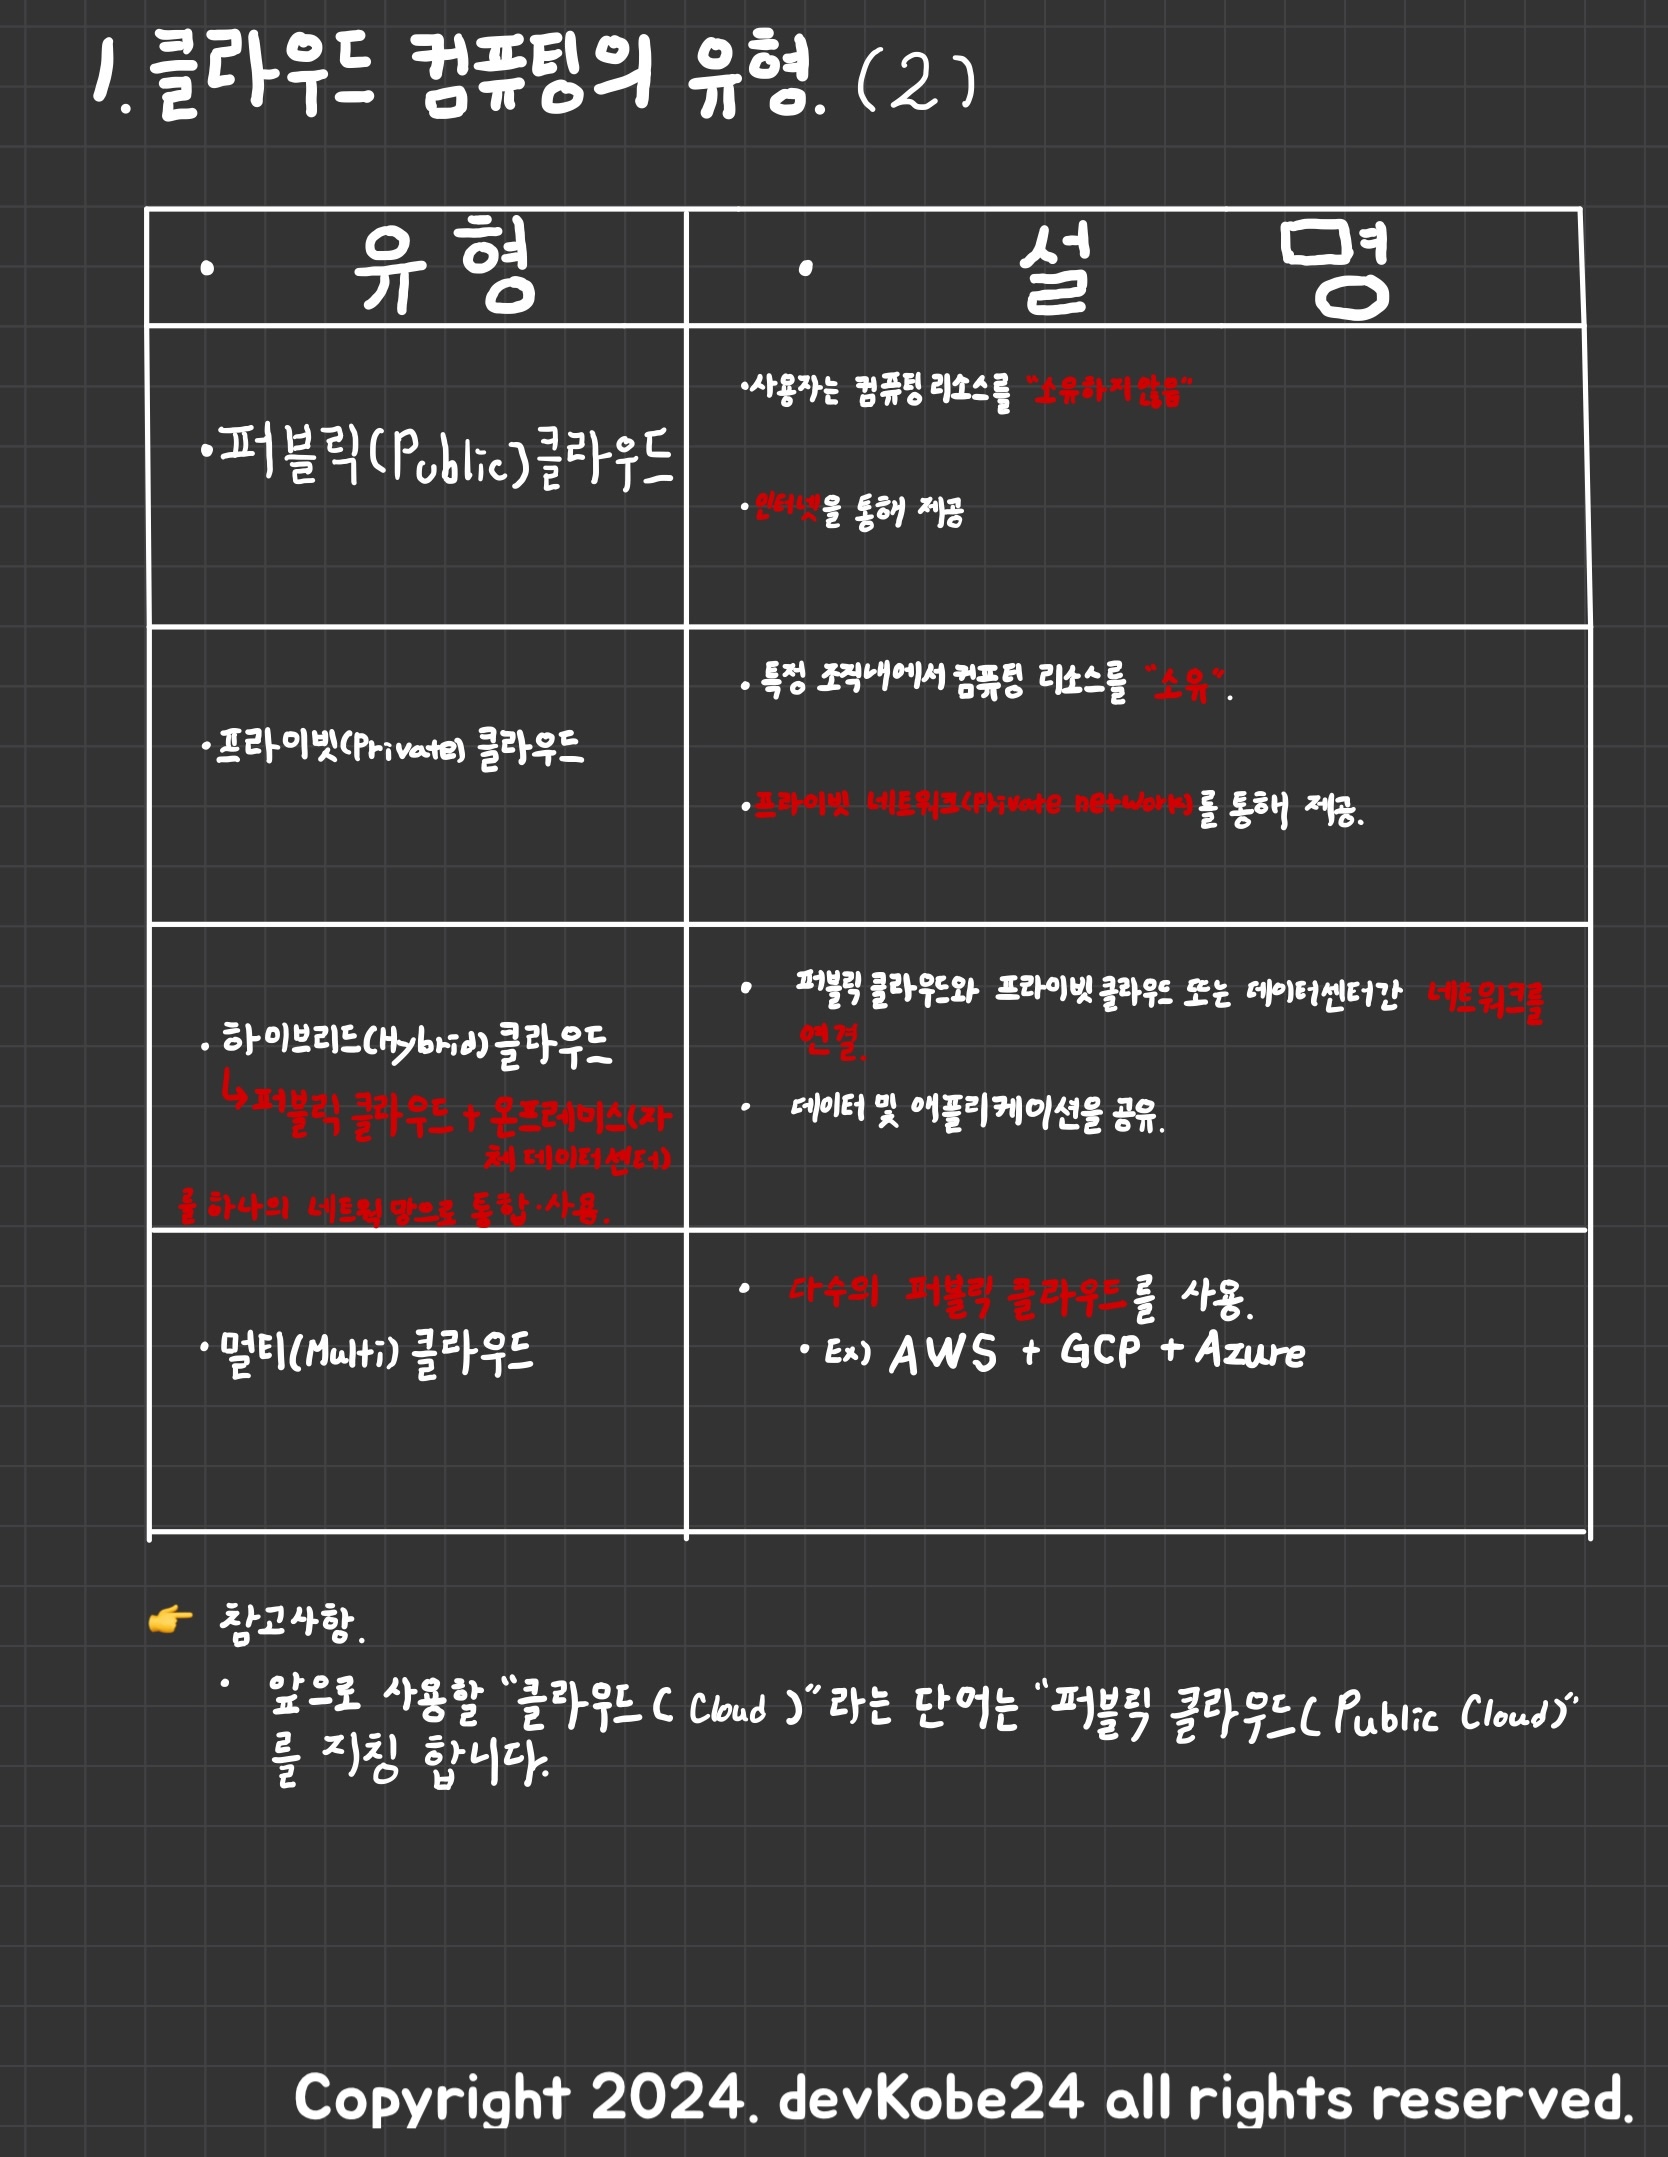 1. 클라우드 컴퓨팅의 유형. (2)
· 유형
· 설명
· 퍼블릭(Public)클라우드
· 사용자는 컴퓨팅 리소스를 "소유하지 않음"
· 인터넷을 통해 제공
· 프라이빗(Private) 클라우드
· 특정 조직내에서 컴퓨팅 리소스를 "소유".
· 프라이빗 네트워크(Private network)를 통해 제공.
· 하이브리드(Hybrid) 클라우드
↳ 퍼블릭 클라우드 + 온프레미스(자
체 데이터센터)
를 하나의 네트웍 망으로 통합·사용.
· 퍼블릭 클라우드와 프라이빗 클라우드 또는 데이터센터간 네트워크를
연결.
· 데이터 및 애플리케이션을 공유.
· 멀티(Multi) 클라우드
· 다수의 퍼블릭 클라우드를 사용.
· Ex) AWS + GCP + Azure
👉 참고사항.
· 앞으로 사용할 "클라우드( Cloud )"라는 단어는 "퍼블릭 클라우드( Public Cloud)"
를 지칭 합니다.
Copyright 2024. devKobe24 all rights reserved.